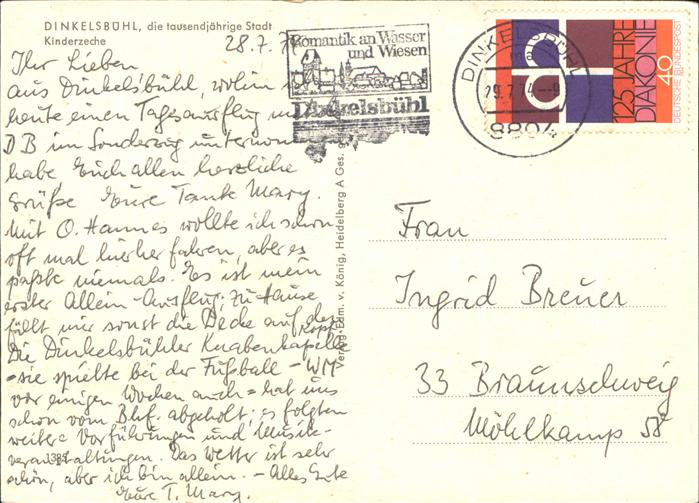 DINKELSBÜHL, die tausendjährige Stadt
Kinderzeche
28.7.
Ihr Lieben
aus Dinkelsbühl, wohin
heute einen Tagesausflug
DB im Sonderzug
habe Euch allen herzliche
Grüße Eure Tante Mary.
Mit O. Hannes wollte ich schon
oft mal hierher fahren, aber es
paßte niemals. Es ist mein
erster Allein-Ausflug; zu Hause
fällt mir sonst die Decke auf den
Kopf.
Die Dinkelsbühler Knabenkapelle
- sie spielte bei der Fußball-WM
vor einigen Wochen auch - hat uns
schon vom Bhf. abgeholt; es folgten
weitere Vorführungen und Musik-
veranstaltungen. Das Wetter ist sehr
schön, aber ich bin allein. - Alles Gute
Eure T. Mary.
Romantik an Wasser
und Wiesen
Dinkelsbühl
DINKELSBÜHL
29.7.74
8804
125 JAHRE
DIAKONIE
40
DEUTSCHE BUNDESPOST
Verlag Edm. v. König, Heidelberg A Ges.
Frau
Ingrid Breuer
33 Braunschweig
Möhlkamp 58